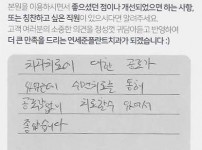 본원을 이용하시면서 좋으셨던 점이나 개선되었으면 하는 사항,
또는 칭찬하고 싶은 직원이 있으시다면 말씀해주세요.
고객 여러분의 소중한 의견을 정성껏 귀담아듣고 반영하여
더 큰 만족을 드리는 연세준플란트치과가 되겠습니다 :)
치과치료에 대한 공포가
있었는데 수면치료를 통해
공포감없이 치료받을 수 있어서
좋았습니다